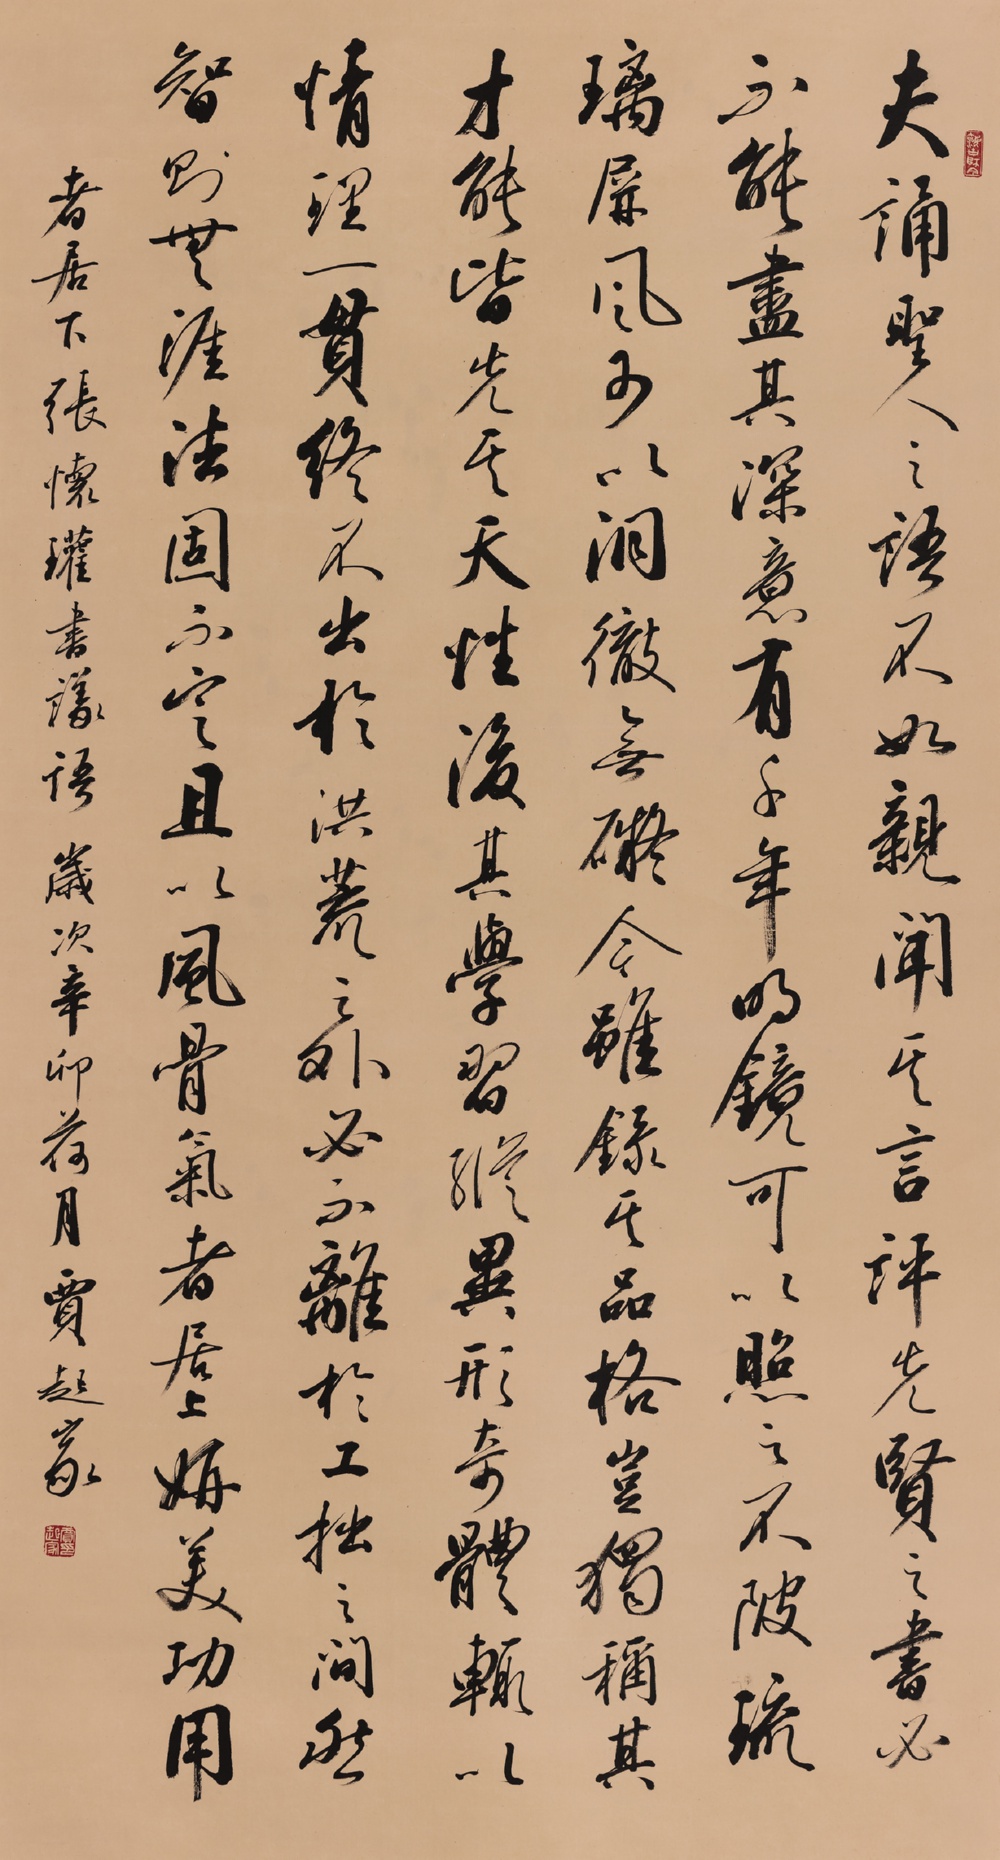 夫誦聖人之語不如親聞其言評先賢之書必
不能盡其深意有千年明鏡可以照之不陂琉
璃屏風可以洞徹無礙今雖錄其品格豈獨稱其
才能皆先其天性後其學習縱異形奇體輒以
情理一貫終不出於洪荒之外必不離於工拙之間然
智則無涯法固不定且以風骨氣者居上妍美功用
者居下張懷瓘書議語 歲次辛卯荷月賈起家